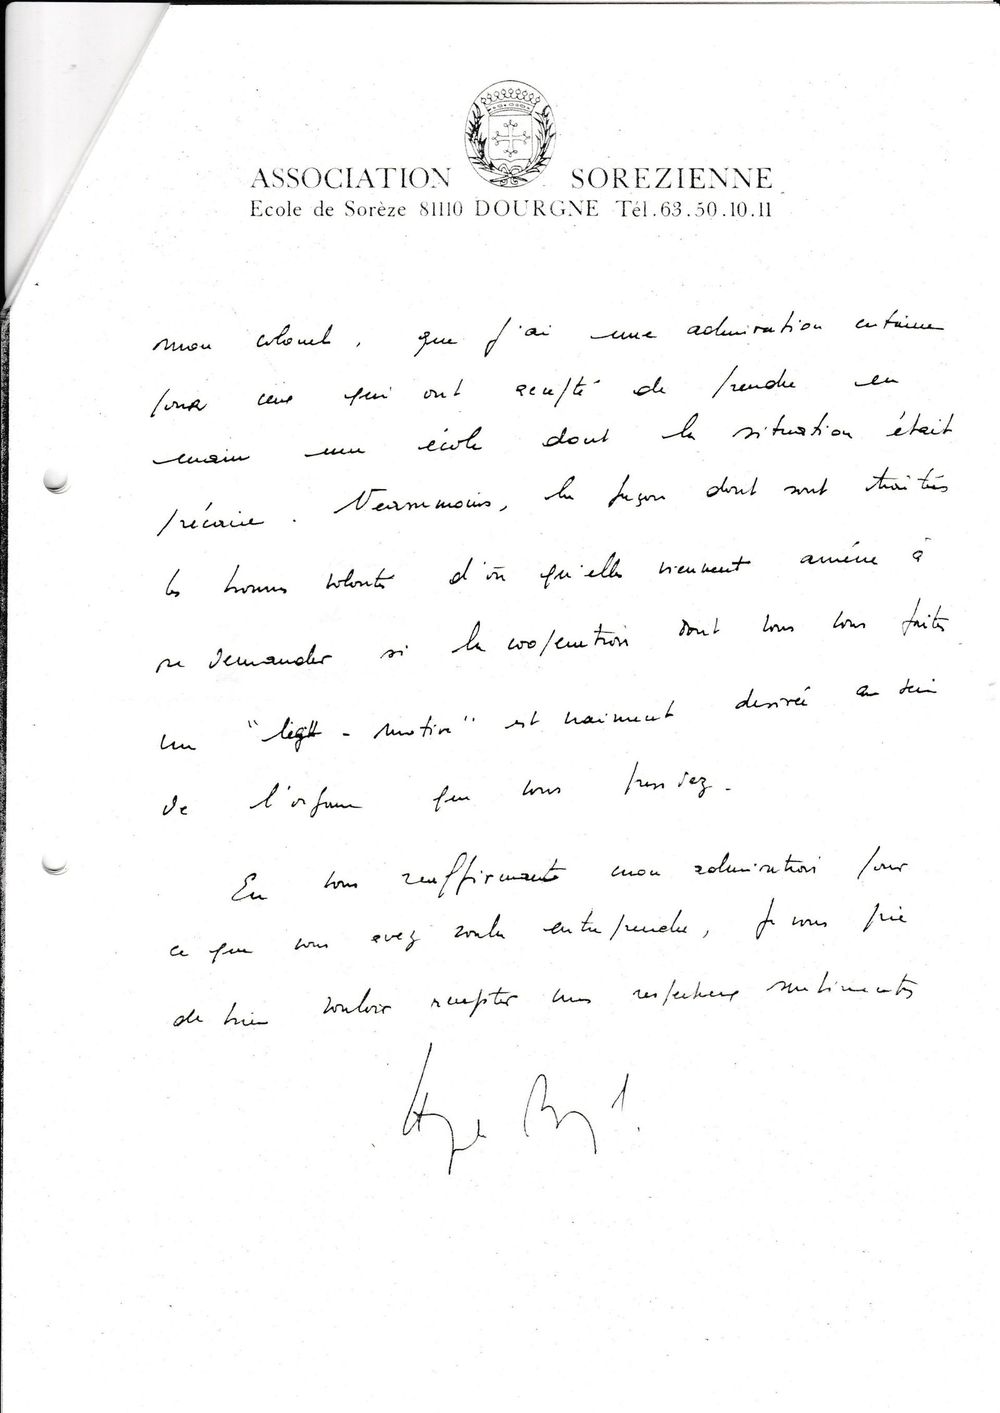 ASSOCIATION SOREZIENNE
Ecole de Sorèze 81110 DOURGNE Tél.63.50.10.11
mon colonel, que j'ai une admiration certaine
pour ceux qui ont accepté de prendre en
main une école dont la situation était
précaire. Néanmoins, la façon dont sont traités
les bonnes volontés d'où qu'elles viennent amène à
se demander si la coopération dont vous vous faites
un "leight-motive" est vraiment désirée au sein
de l'organe que vous présidez.
En vous réaffirmant mon admiration pour
ce que vous avez voulu entreprendre, je vous prie
de bien vouloir accepter mes respectueux sentiments